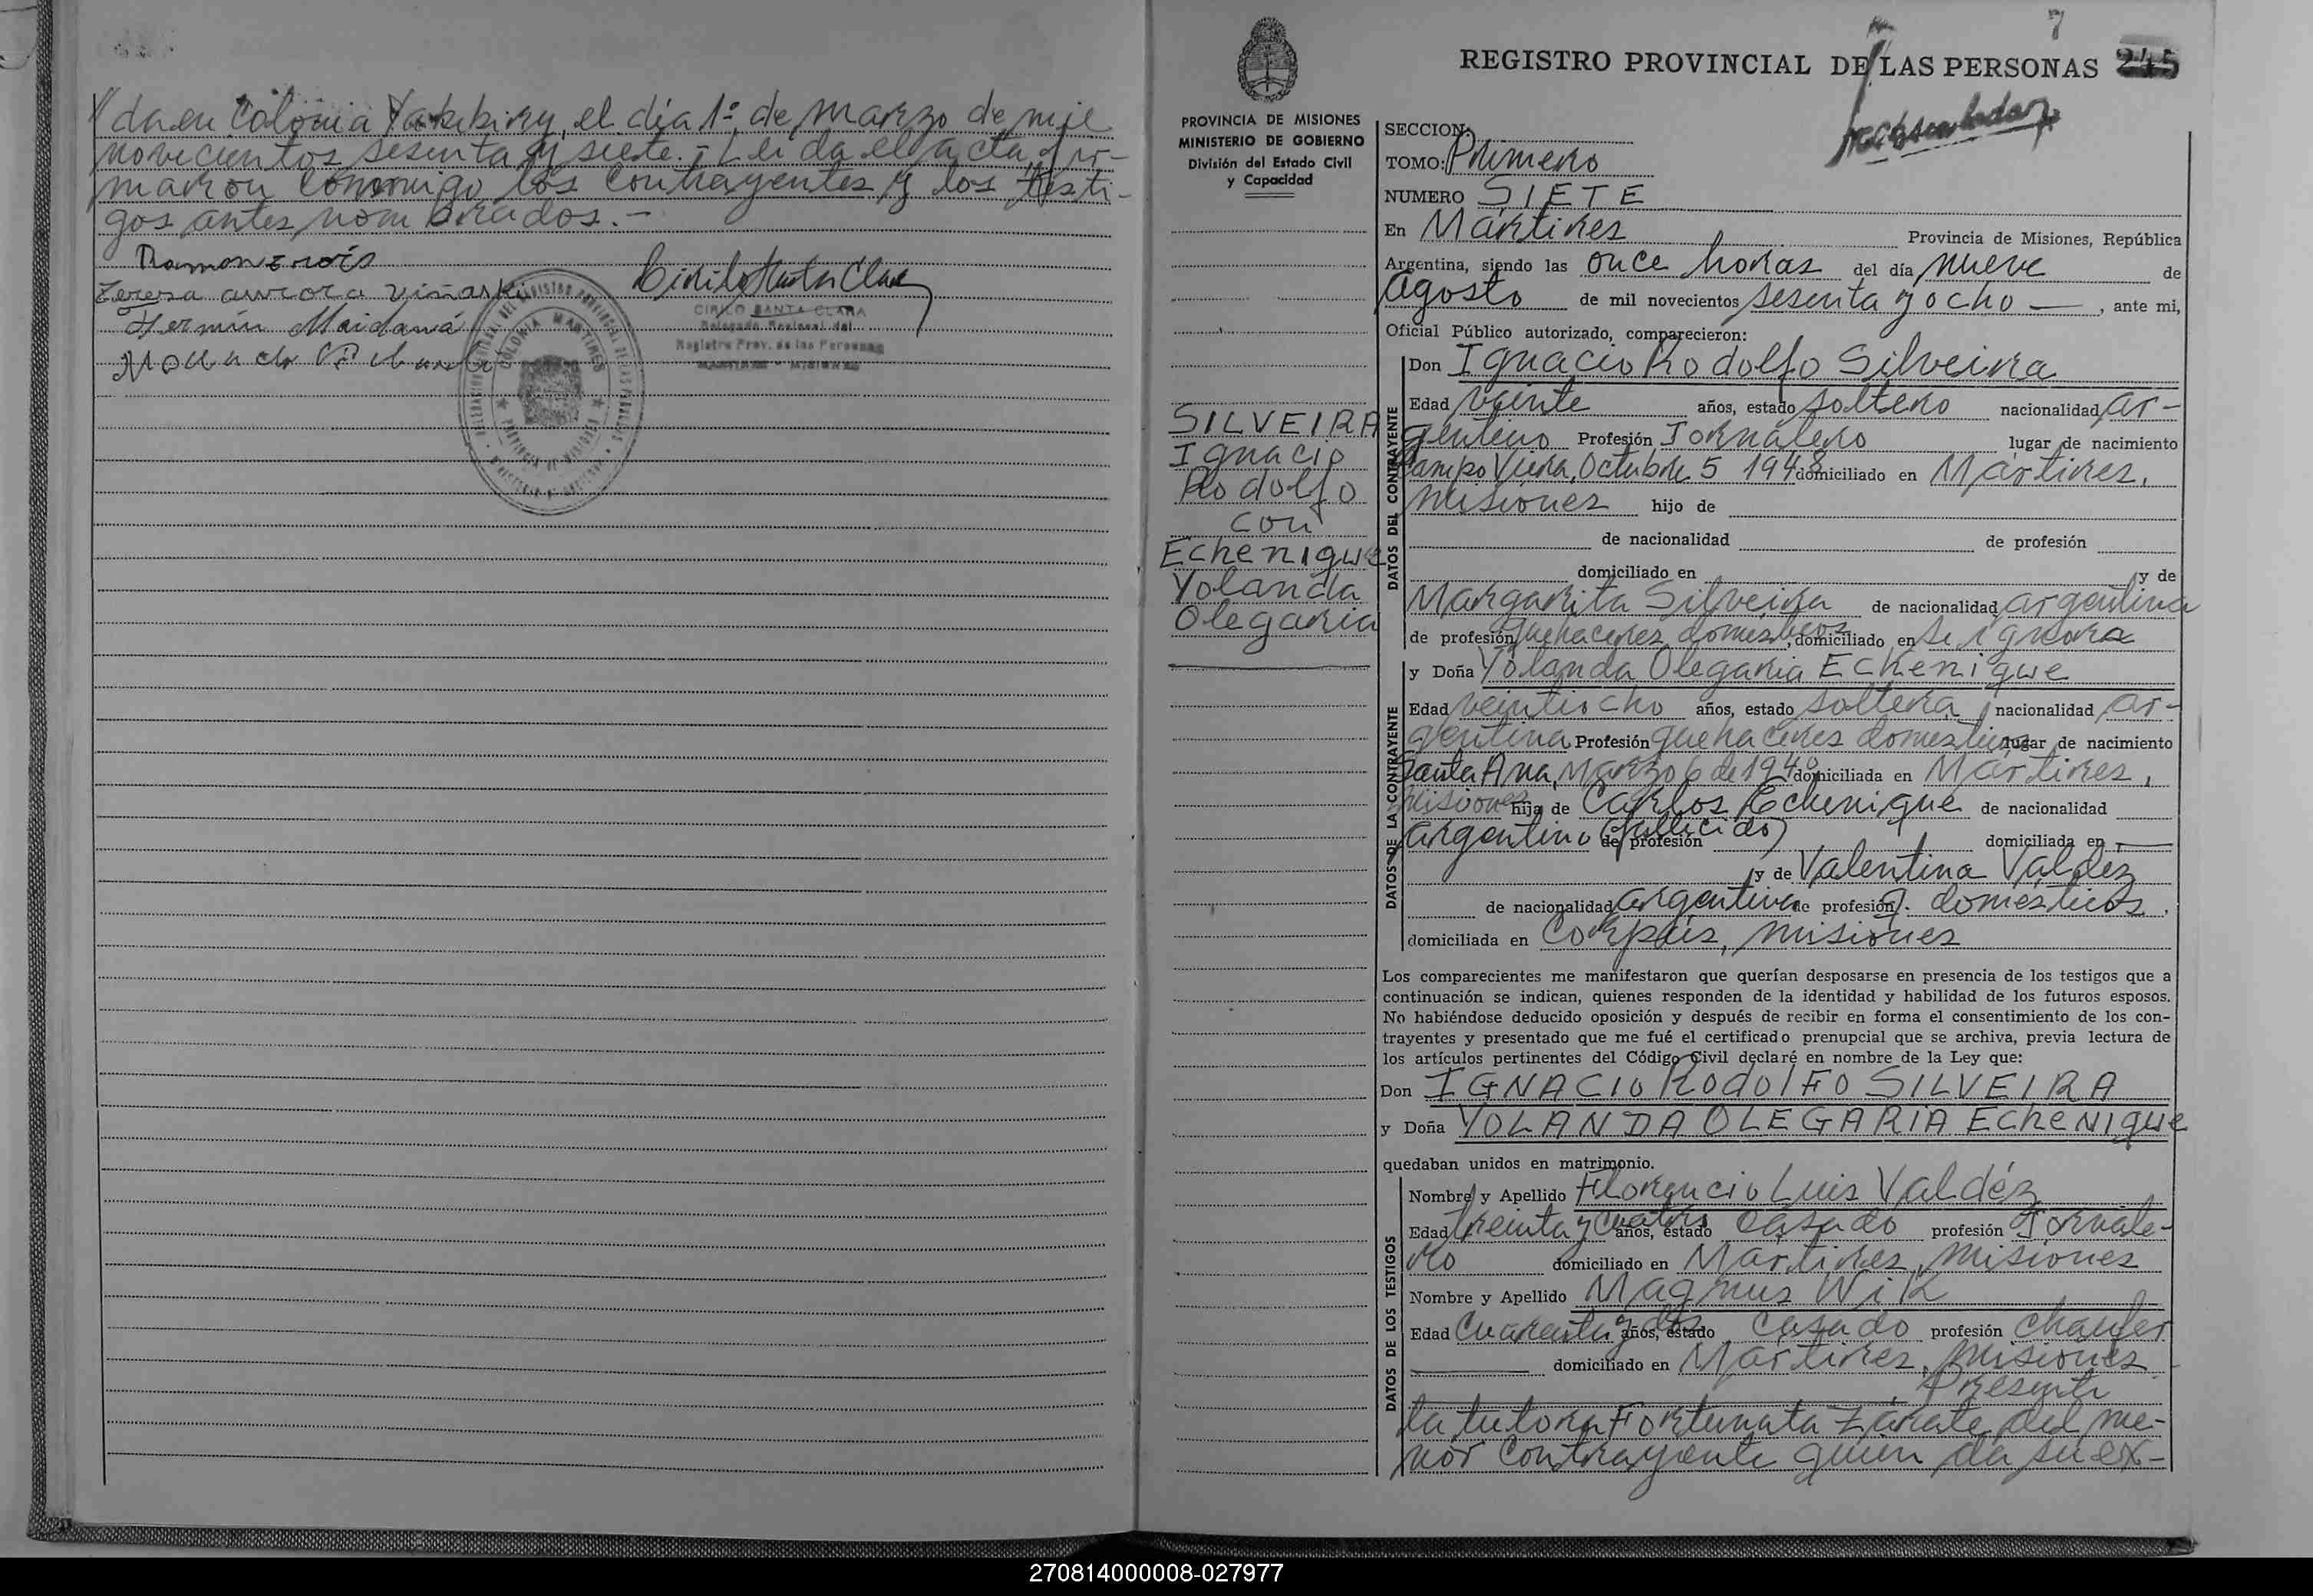 da en Colonia Yabebiry, el día 1º de marzo de mil
novecientos sesenta y siete. - Leída el acta, fir-
maron conmigo los contrayentes y los testi-
gos antes nombrados. -
Teresa aurora Viñaski
Fermín Maidaná
CIRILO SANTA CLARA
Delegado Regional del
Registro Prov. de las Personas
MARTIRES - MISIONES
COLONIA MARTIRES
PROVINCIA DE MISIONES
REGISTRO PROVINCIAL DE LAS PERSONAS 245
7
PROVINCIA DE MISIONES
MINISTERIO DE GOBIERNO
División del Estado Civil
y Capacidad
SILVEIRA
Ignacio
Rodolfo
con
Echenique
Yolanda
Olegaria
SECCION:
TOMO: Primero
NUMERO SIETE
En Mártires Provincia de Misiones, República
Argentina, siendo las once horas del día nueve de
Agosto de mil novecientos sesenta y ocho —, ante mi,
Oficial Público autorizado, comparecieron:
DATOS DEL CONTRAYENTE
Don Ignacio Rodolfo Silveira
Edad veinte años, estado soltero nacionalidad ar-
gentino Profesión Jornalero lugar de nacimiento
Campo Viera, Octubre 5 1948 domiciliado en Mártires,
Misiones hijo de
de nacionalidad de profesión
domiciliado en y de
Margarita Silveira de nacionalidad argentina
de profesión quehaceres domesticos, domiciliado en se ignora
DATOS DE LA CONTRAYENTE
y Doña Yolanda Olegaria Echenique
Edad veintiocho años, estado soltera nacionalidad ar-
gentina Profesión quehaceres domesticos lugar de nacimiento
Santa Ana, Marzo 6 de 1940 domiciliada en Mártires,
Misiones hija de Carlos Echenique de nacionalidad
argentino (fallecido) de profesión domiciliada en —
y de Valentina Valdez
de nacionalidad argentina de profesión q. domésticos,
domiciliada en Corpus, Misiones
Los comparecientes me manifestaron que querían desposarse en presencia de los testigos que a
continuación se indican, quienes responden de la identidad y habilidad de los futuros esposos.
No habiéndose deducido oposición y después de recibir en forma el consentimiento de los con-
trayentes y presentado que me fué el certificado prenupcial que se archiva, previa lectura de
los artículos pertinentes del Código Civil declaré en nombre de la Ley que:
Don IGNACIO RODOLFO SILVEIRA
y Doña YOLANDA OLEGARIA EcheNique
quedaban unidos en matrimonio.
DATOS DE LOS TESTIGOS
Nombre y Apellido Florencio Luis Valdéz
Edad treinta y cuatro años, estado casado profesión Jornale-
ro domiciliado en Mártires, Misiones
Nombre y Apellido Magnus Wik
Edad Cuarenta y dos años, estado casado profesión chaufer
domiciliado en Mártires, Misiones
Presente
la tutora Fortunata Zárate del me-
nor contrayente quien da su ex-
270814000008-027977